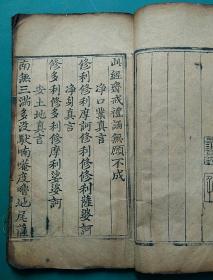 經齋戒禮誦無願不成
净口業真言
修利修利摩訶修利修修利薩婆訶
净身真言
修多利修多利修摩利娑婆訶
安土地真言
南無三滿多沒馱喃唵度嚕地尾薩